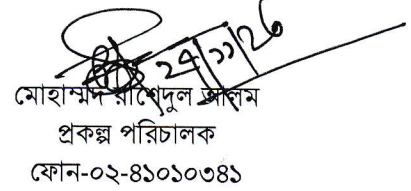 মোহাম্মদ রাশেদুল আলম
প্রকল্প পরিচালক
ফোন-০২-৪১০১০৩৪১